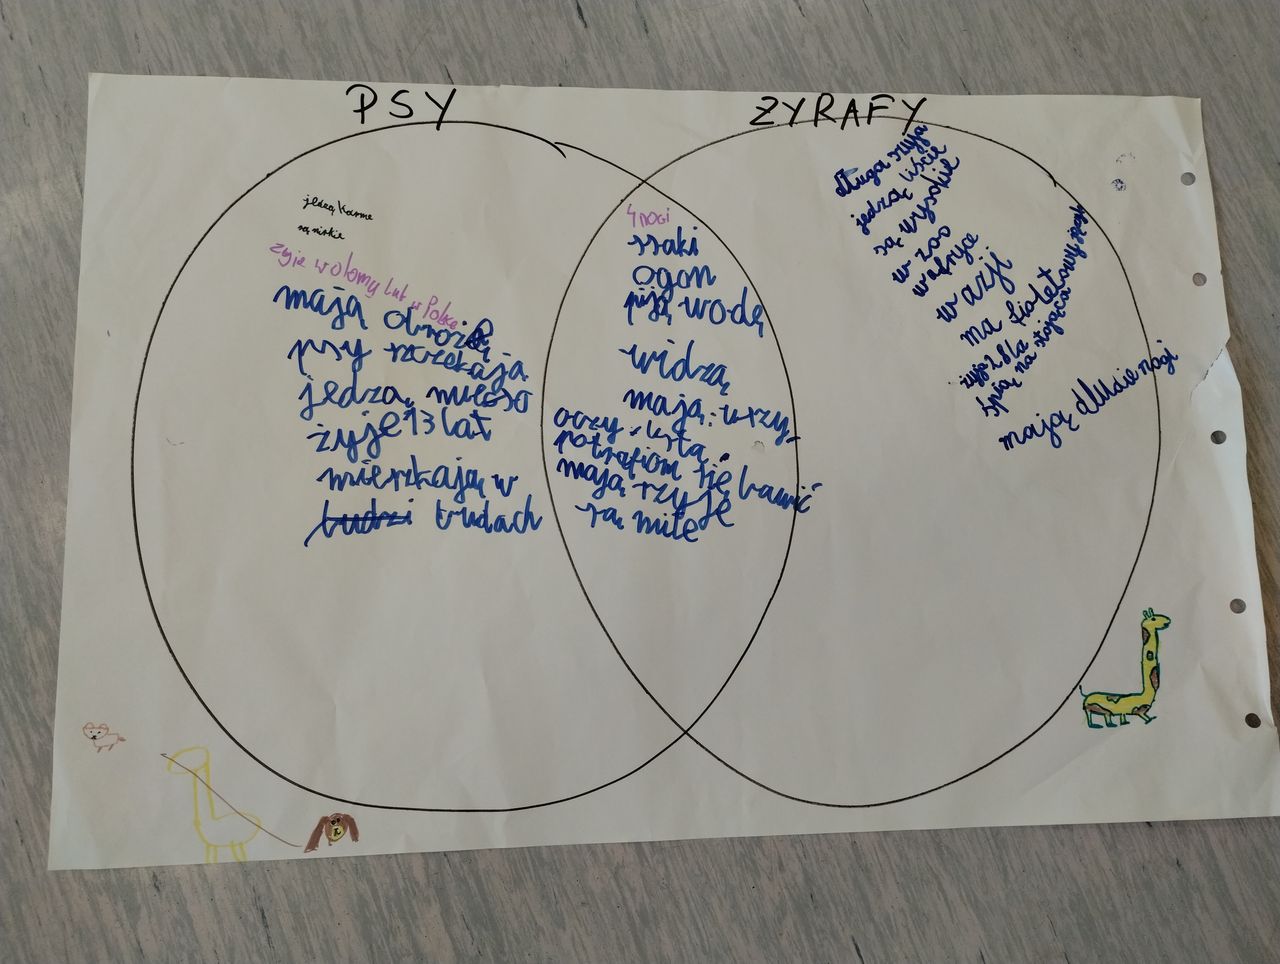 PSY
ŻYRAFY
jedzą karme
są niskie
żyje w domu lub w Polsce
mają obrożę
psy szczekają
jedzą mięso
żyje 13 lat
mieszkają w
budzi budach
4 nogi
ssaki
ogon
piją wodę
widzą
mają: uszy,
oczy, usta
potrafiom się bawić
mają szyje
są miłe
długa szyja
jedzą liście
są wysokie
w zoo
w afryce
w azji
ma fioletowy język
żyją 28 la
śpią na stojąca
mają dłudzie nogi